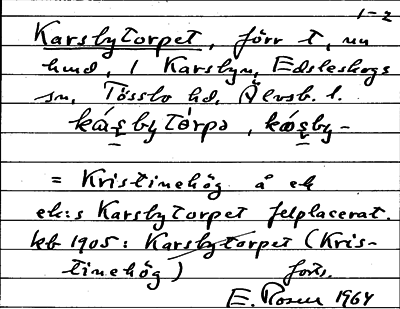 1-2
Karsbytorpet, förr t, nu
hmd, i Karsbyn, Edsleskogs
sn, Tössbo hd, Älvsb. l.
kás̱bytòrpə, kás̱by-
= Kristinehög å ek
ek:s Karsbytorpet felplacerat.
kb 1905: Karsbytorpet (Kris-
tinehög) forts.
E. Rosen 1964